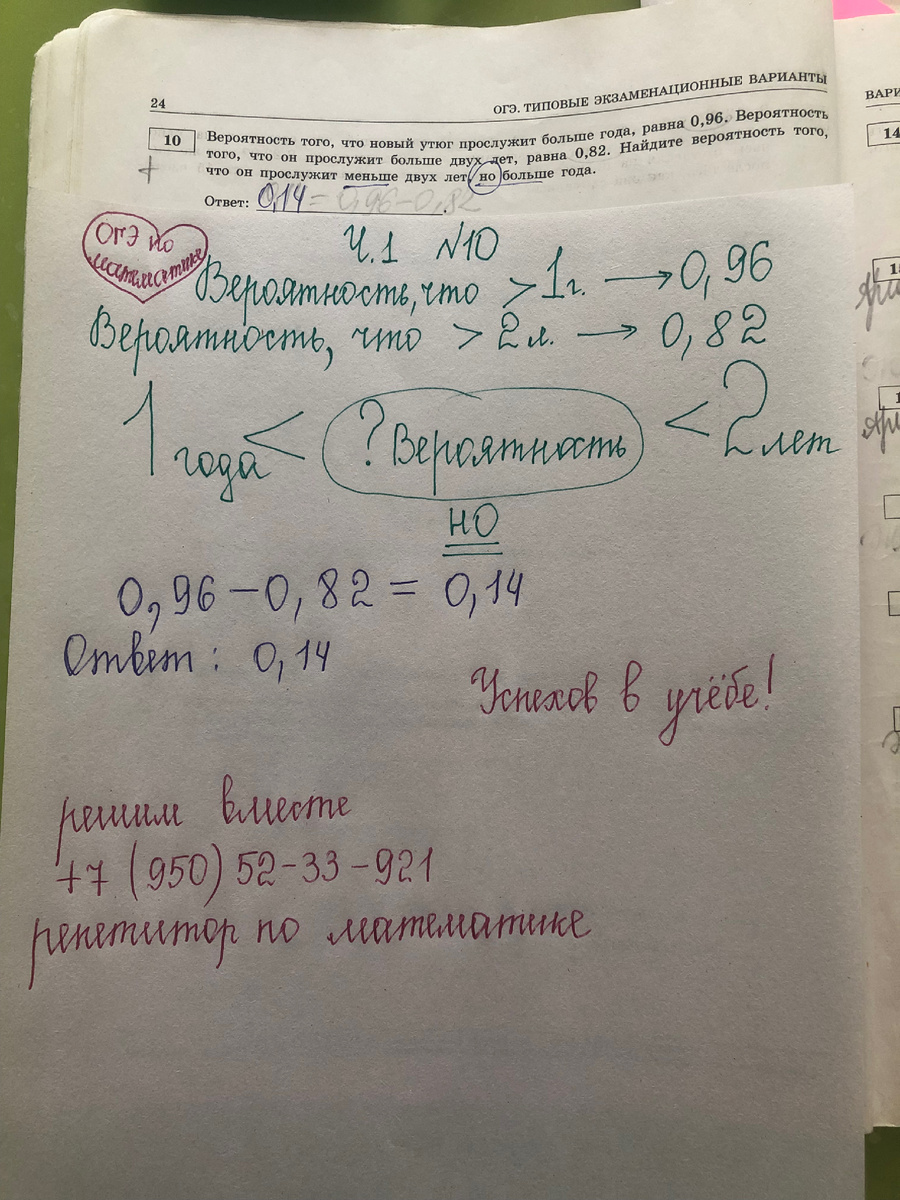 24
ОГЭ. ТИПОВЫЕ ЭКЗАМЕНАЦИОННЫЕ ВАРИАНТЫ
10
Вероятность того, что новый утюг прослужит больше года, равна 0,96. Вероятность
того, что он прослужит больше двух лет, равна 0,82. Найдите вероятность того,
что он прослужит меньше двух лет, но больше года.
+
Ответ: 0,14 = 0,96-0,82
ОГЭ по
математике
Ч.1 №10
Вероятность, что > 1 г. → 0,96
Вероятность, что > 2 л. → 0,82
1 года < ? Вероятность < 2 лет
НО
0,96 - 0,82 = 0,14
Ответ: 0,14
Успехов в учёбе!
решим вместе
+7 (950) 52-33-921
репетитор по математике
ВАРИ
14